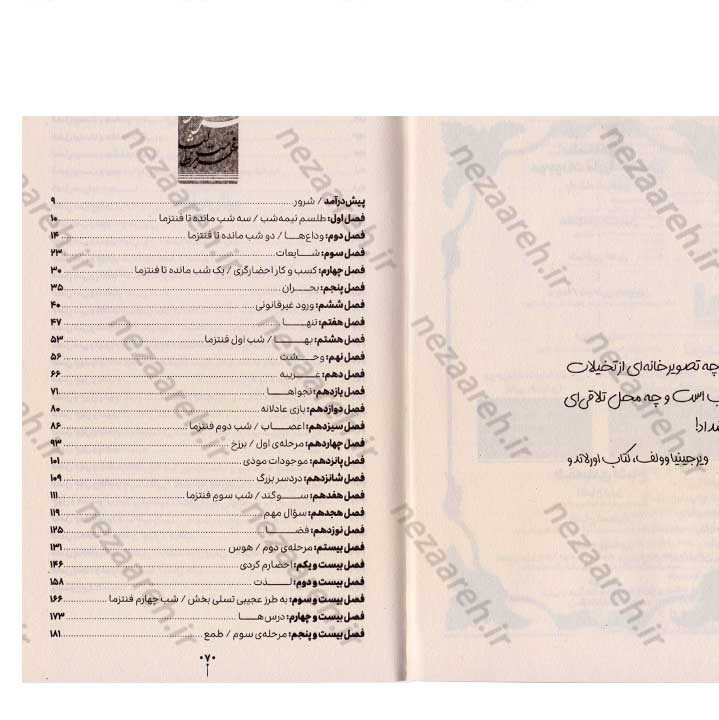 چه تصویرخانه‌ای از تخیلات
است و چه محل تلاقی‌ای
ویرجینیا وولف، کتاب اورلاندو
پیش‌درآمد / شرور ۹
فصل اول: طلسم نیمه‌شب / سه شب مانده تا فنتزما ۱۰
فصل دوم: وداع‌هـــا / دو شب مانده تا فنتزما ۱۴
فصل سوم: شـــایعات ۲۳
فصل چهارم: کسب و کار احضارگری / یک شب مانده تا فنتزما ۳۰
فصل پنجم: بحـــران ۳۵
فصل ششم: ورود غیرقانونی ۴۰
فصل هفتم: تنهـــا ۴۷
فصل هشتم: بهـــا / شب اول فنتزما ۵۳
فصل نهم: وحـــشت ۵۶
فصل دهم: غـــریبه ۶۶
فصل یازدهم: نجواهـــا ۷۱
فصل دوازدهم: بازی عادلانه ۸۰
فصل سیزدهم: اعصـــاب / شب دوم فنتزما ۸۶
فصل چهاردهم: مرحله‌ی اول / برزخ ۹۳
فصل پانزدهم: موجودات موذی ۱۰۱
فصل شانزدهم: دردسر بزرگ ۱۰۹
فصل هفدهم: ســـوگند / شب سوم فنتزما ۱۱۱
فصل هجدهم: سؤال مهم ۱۱۹
فصل نوزدهم: فضـــا ۱۲۵
فصل بیستم: مرحله‌ی دوم / هوس ۱۳۱
فصل بیست و یکم: احضارم کردی ۱۴۶
فصل بیست و دوم: لـــذت ۱۵۸
فصل بیست و سوم: به طرز عجیبی تسلی بخش / شب چهارم فنتزما ۱۶۶
فصل بیست و چهارم: درس‌هـــا ۱۷۳
فصل بیست و پنجم: مرحله‌ی سوم / طمع ۱۸۱
۰۷۰
nezaareh.ir
nezaareh.ir
nezaareh.ir
nezaareh.ir
nezaareh.ir
nezaareh.ir
nezaareh.ir
nezaareh.ir
nezaareh.ir